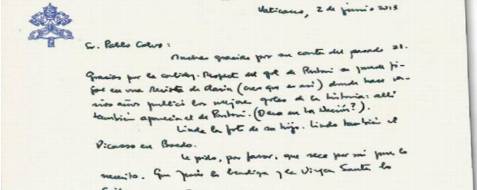 Vaticano, 2 de junio 2013
Sr. Pablo Calvo:
Muchas gracias por su carta del pasado 21.
Gracias por la . Respecto del gol de Pontoni se puede fi
jar en una Revista de Clarín (creo que es así) donde hace va
rios años publicó los mejores goles de la historia: allí
también aparecía el de Pontoni. (O era en La Nación?).
Linda la foto de su hijo. Lindo también el
Picasso en Boedo.
Le pido, por favor, que rece por mí pues lo
necesito. Que Jesús lo bendiga y la Virgen Santa lo